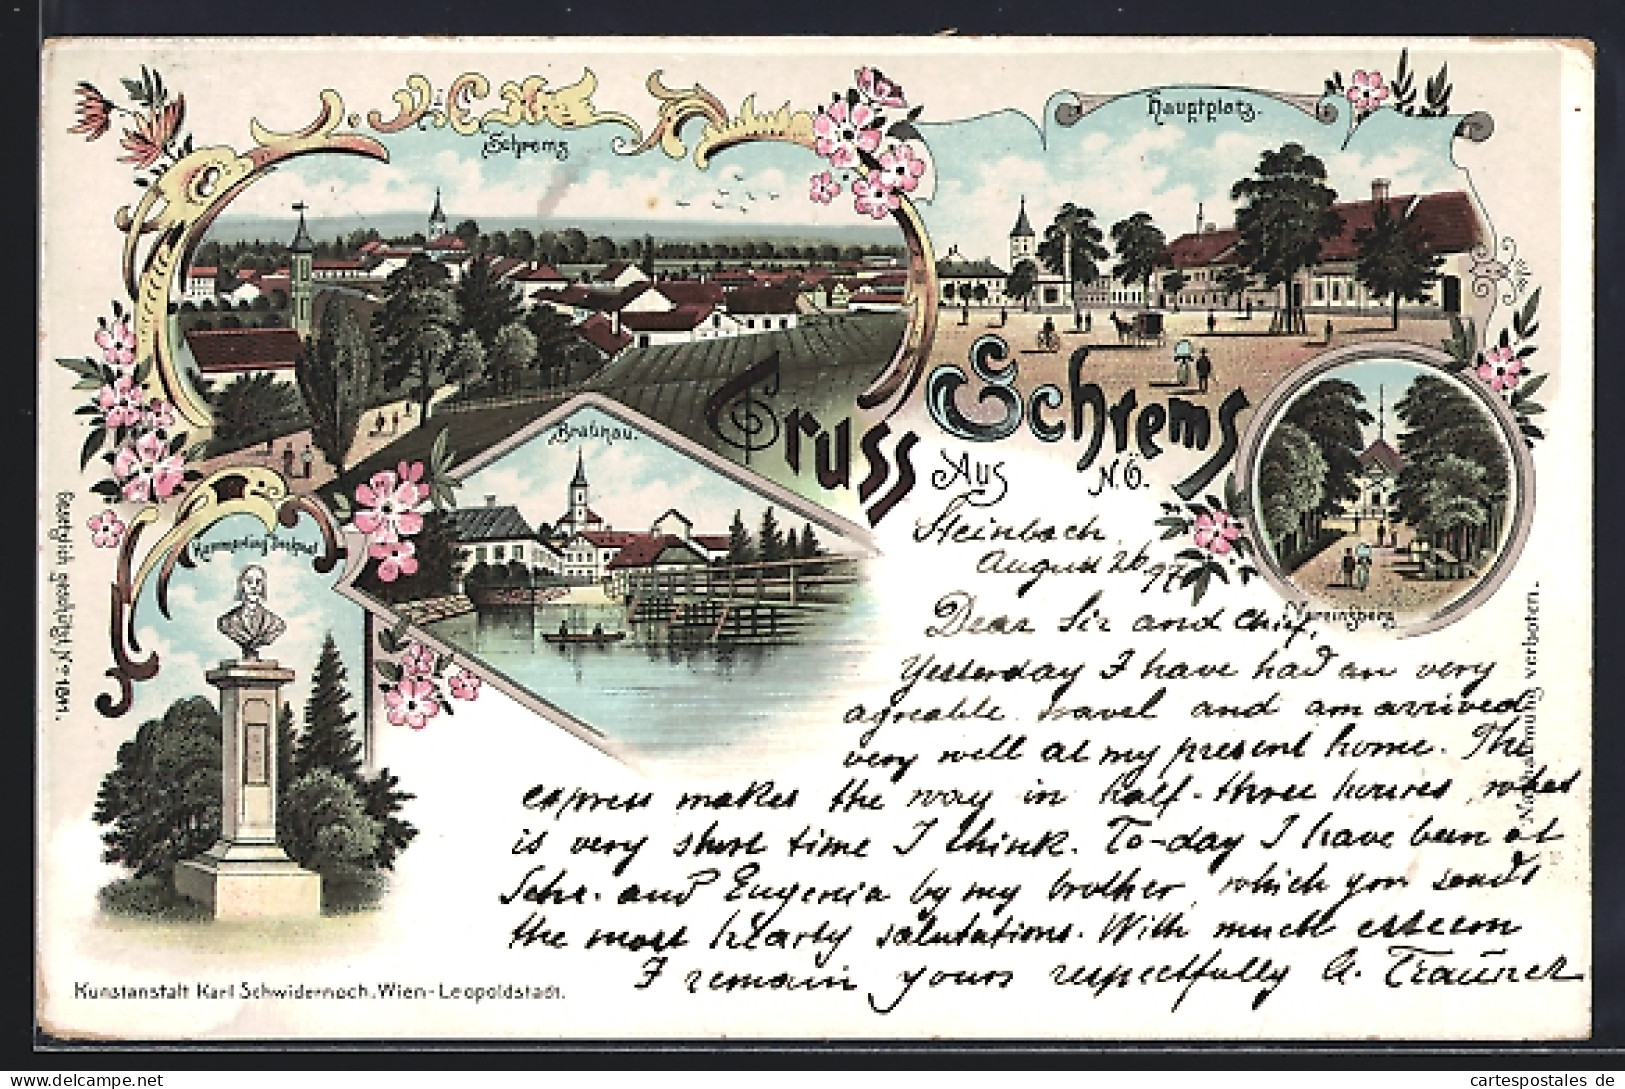 Schrems
Hauptplatz.
Brauhau.
Gruss
Aus
Schrems
N.Ö.
Hammerling Denkmal
Vereinsberg
Gesetzlich geschützt
Nachahmung verboten.
Steinbach,
August 26 97
Dear Sir and Chief,
Yesterday I have had an very
agreable travel and am arrived
very well at my present home. The
express makes the way in half-three houres, what
is very short time I think. To-day I have been at
Schr. and Eugenia by my brother, which you sends
the most hearty salutations. With much esteem
I remain yours respectfully A.
Kunstanstalt Karl Schwidernoch, Wien-Leopoldstadt.
cartespostales de